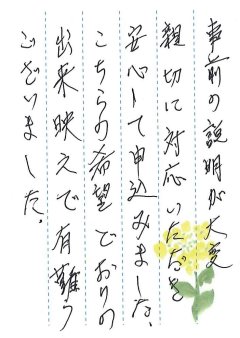 事前の説明が大変
親切に対応いただき
安心して申込みました。
こちらの希望どおりの
出来映えで有難う
ございました。